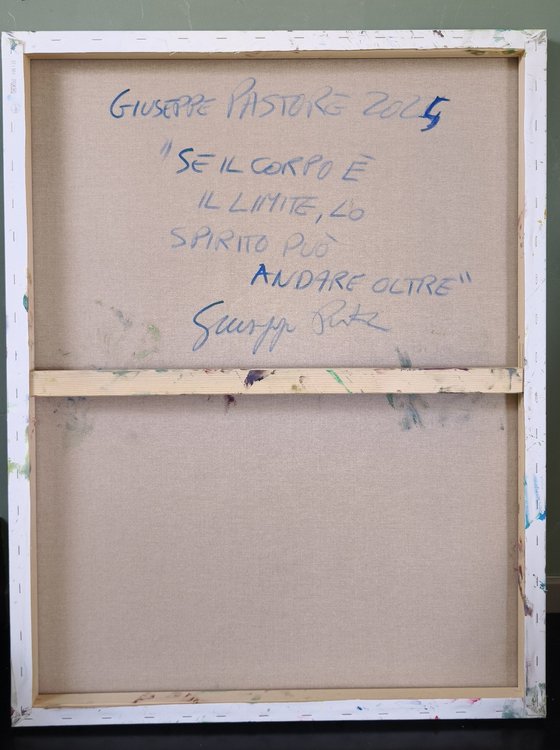 GIUSEPPE PASTORE 2025
"SE IL CORPO È
IL LIMITE, LO
SPIRITO PUÒ
ANDARE OLTRE"